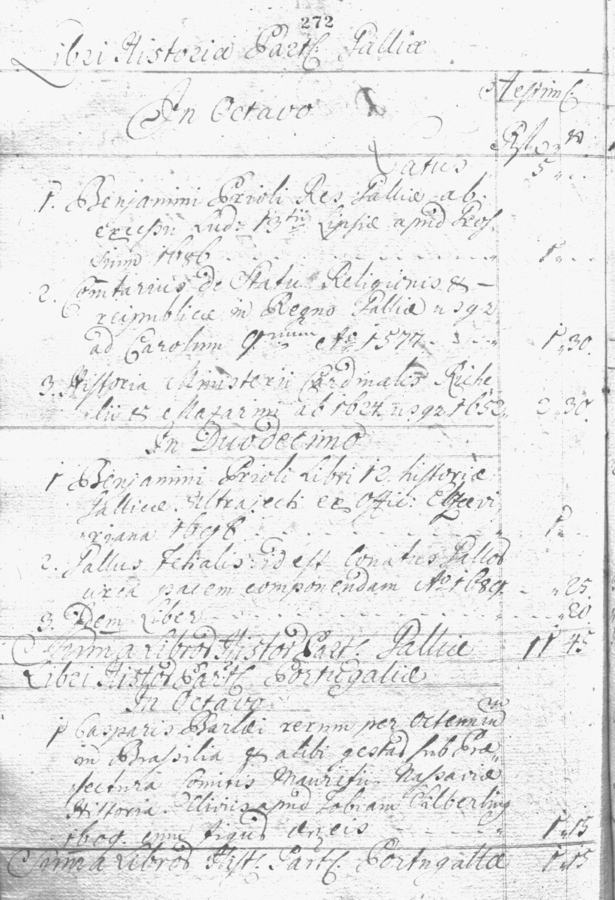 272
Libri Historiæ Part. Galliæ
In Octavo
Æstim
Latus 5 " .
1. Benjamini Prioli Res Galliæ ab
excessu Lud: 13tii Lipsiæ apud
1686 1 " .
2. de Statu Religionis &
reipublicæ in Regno Galliæ usqz
ad Carolum 9num Aō 1577 1 " 30.
3. Historia Ministerii Cardinalis Riche
lii & Mazarini ab 1624 usqz 1652 2 " 30.
In Duodecimo
1 Benjamini Prioli Libri 12. historiæ
Gallicæ. Ultrajecti ex Offic: Elzevi
riana
2. Gallus Fetialis id est Conatus
circa pacem componendam " 25
3. Idem Liber " 20
Suma Libror Histor Part. Galliæ 11 45
Libri Histor Part. Portugalliæ
In Octavo
1 Casparis Barlæi rerum per Octennium
in Brasilia & alibi gestar sub Præ
fectura Comitis Mauritii Nassoviæ
Historia. Clivis apud Tobiam Silberling
cum figur æneis 1 " 15
Suma Librod Hist. Part. Portugalliæ 1 " 15